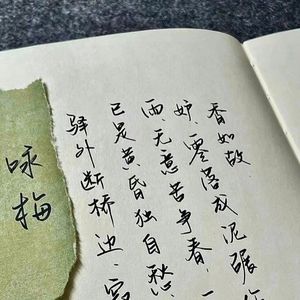 咏梅
驿外断桥边、寂
已是黄昏独自愁
雨、无意苦争春、一
妒、零落成泥碾作
香如故.